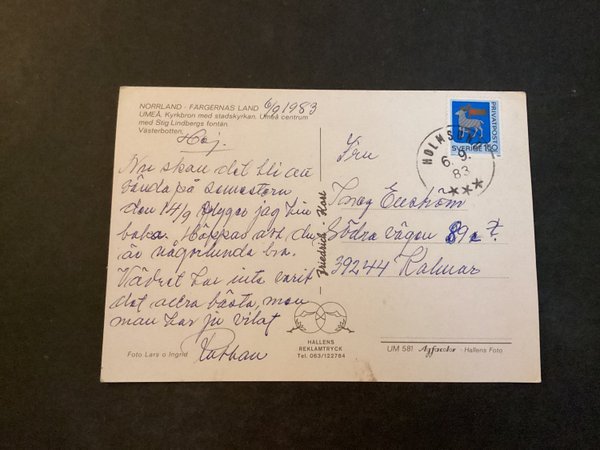 NORRLAND - FÄRGERNAS LAND 6/9 1983
UMEÅ. Kyrkbron med stadskyrkan. Umeå centrum
med Stig Lindbergs fontän.
Västerbotten.
Hej.
Nu skall det bli att
vända på semestern
den 14/9 flyger jag hem
Hoppas att du
är någorlunda bra.
Vädret har inte varit
det allra bästa, men
man har ju vilat
Foto Lars o Ingrid
Friedrich
HALLENS
REKLAMTRYCK
Tel. 063/122784
PRIVATPOST
SVERIGE
HOLMSUND
6.9.
83
Fru
Södra vägen 89
39244 Kalmar
UM 581 Agfacolor - Hallens Foto